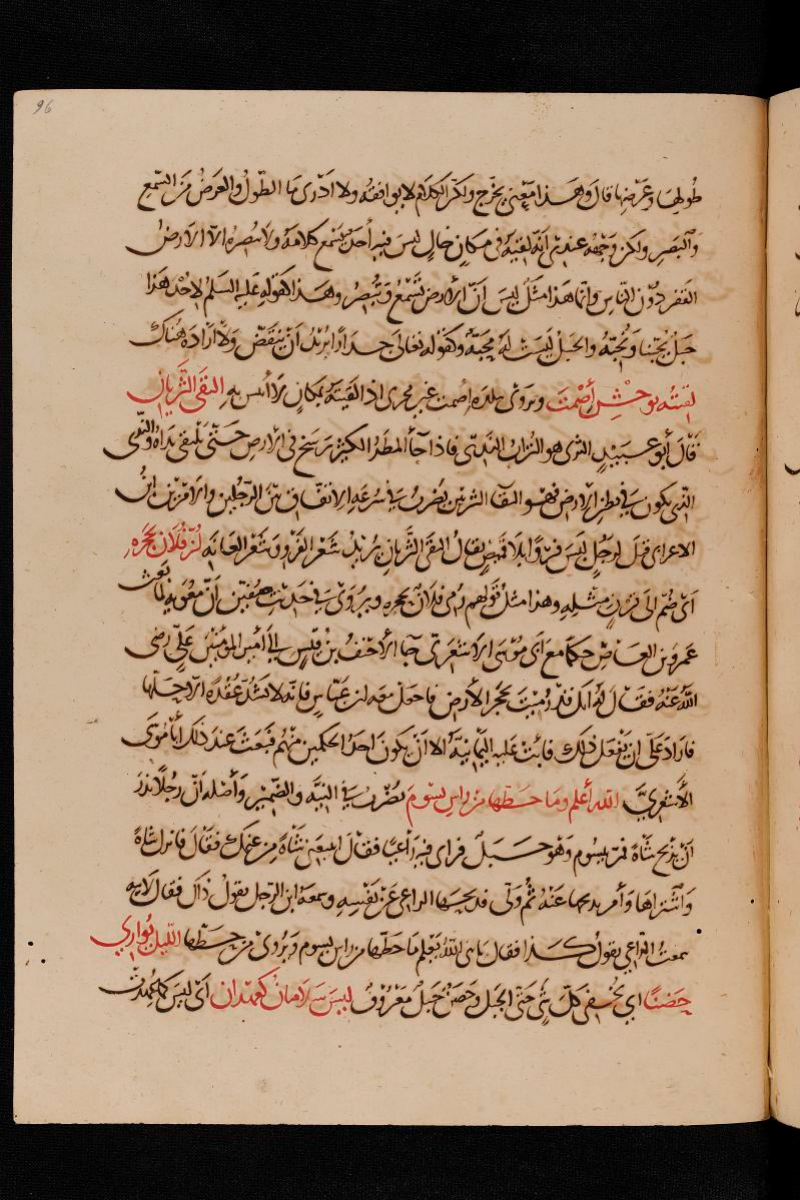 96
طُولِهَا وعَرْضِها قالَ وهَذا مَعْنى يخرّج ولكن الكلام لا يوافقه ولا ادرى ما الطّولُ والعَرْضُ مِنَ السَّمع
والبَصَرِ ولكن وجْهه عندى انّه لَقيتُه فى مكانٍ خالٍ ليسَ فيه أحدٌ يَسْمع كلامَه ولا يُبْصِرُه الّا الارضُ
القفر دُون النّاسِ وانما هذا مثلٌ ليسَ انّ الارض تَسْمَعُ وتُبْصِرُ وهذا كقوله عليه السلم لاحُد هَذا
جَبلٌ يُحِبّنا ونُحبّه والجبل ليست لهُ محبّةٌ وكقوله تعالى جدارًا يُريدُ اَنْ ينقضّ ولا ارادةَ هُناك
لقيتُه بوَحْشِ إصْمِتَ ويروى ببلدة إصمت غير مجرى اذا لقيتَه بمكانٍ لا أنيس به التقى الثَّرَيان
قالَ أبو عبيدٍ الثرى هو التُرابُ النّدىّ فاذا جآء المطرُ الكثيرُ رسَخ فى الارض حتّى يلتقى نداهُ والندى
الذى يكون فى بطن الارض فهو التقاء الثريين يُضْربُ فى سُرعةِ الاتّفاق بَيْن الرّجُلين والامْرَيْن ابنُ
الاعرابى قيلَ لرجُلٍ لبِسَ فروًا بلا قميصٍ فقالُ التقى الثَّريانِ يُريدُ شَعَر الفَرْوِ وشَعَر العانة لُزَّ فُلانٌ بحَجَره
اَىْ ضُمّ الَى قِرْنٍ مثلِهِ وهذا مثلُ قولهم رُمِى فلانٌ بحجره ويُروى فى حديث صفّين اَنّ معْوية لمّا بَعثَ
عمرو بن العَاصِ حكمًا مَعَ اَبى مُوسَى الاشعرى جا الاحْنَفُ بن قَيسٍ الى أمير المؤمنين عَلىّ رضى
اللّهُ عَنْهُ فقَالَ لهُ انّك قد رُميتَ بحجَر الأرضِ فاجعل معه ابن عبّاسٍ فانّه لا يَشُدُّ عُقْدةً الّا حَلّها
فارادَ علىٌّ ان يَفْعل ذلك فابَتْ عليه اليَمانِيةُ الا اَنْ يكونَ احدُ الحكمين منْهم فبَعَثَ عندَ ذلك أبا مُوسَى
الأشعَرِىَّ اللهُ أعلم ومَا حَطّها من راس يسُوم يُضْرَبُ فى النيّة والضّمير وأصْله انّ رجُلًا نذرَ
اَنْ يذبَح شاةً فمرّ بيسُوم وهو جَبَلٌ فراى فيه راعيًا فقالَ اتبيعُنى شاةً من غنمك فقالَ فانزل شاةً
واشْتراها وامَر بذبحها عَنْهُ ثُم وَلّى فذبحها الراعى عَنْ نَفْسِهِ وسمعهُ ابن الرّجل يقولُ ذاك فقال لابيه
سمعتُ الراعى يقولُ كذا فقال يابنى اللّهُ يَعْلم ما حَطّها من راس يسُوم ويُروى من حطّها الليل يُواري
حَضَنًا اى يُخفى كلّ شئٍ حتّى الجبل وحَضَنٌ جَبلٌ معْرُوفٌ ليسَ سَلامانُ كعهدان اَىْ ليسَ كما عهدت